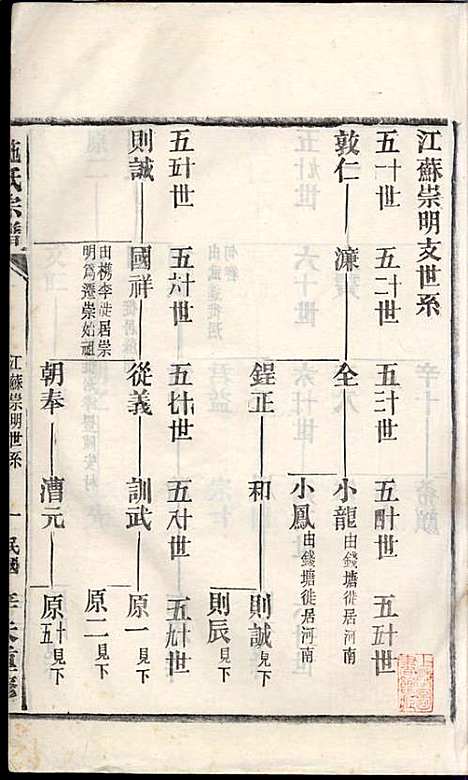 江蘇崇明支世系
五十一世 五十二世 五十三世 五十四世 五十五世
敦仁 濂 全 小龍 由錢塘徙居河南
小鳳 由錢塘徙居河南
鋥正 和 則誠 見下
則辰 見下
五十五世 五十六世 五十七世 五十八世 五十九世
則誠 國祥 從義 訓武 原一 見下
由檇李徙居崇
明爲遷崇始祖
原二 見下
朝奉 漕元 原五十 見下
施氏宗譜
江蘇崇明世系
一
民國
重修